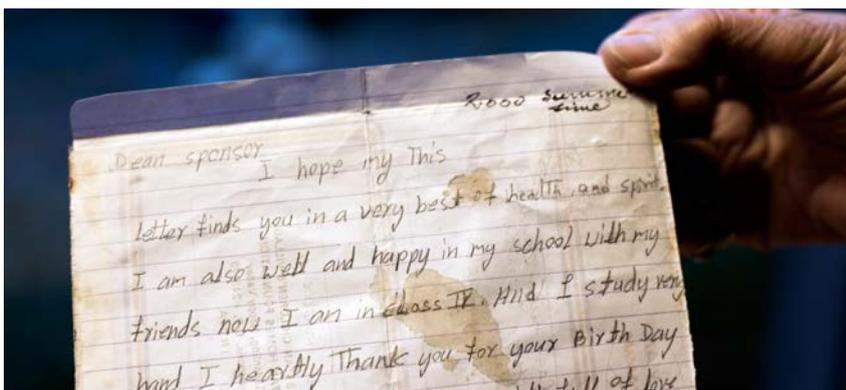 2000 summer
time
Dear sponsor
I hope my This
letter finds you in a very best of health and spirit.
I am also well and happy in my school with my
friends now I am in Class IV. And I study very
hand I heartly Thank you for your Birth Day
full of love